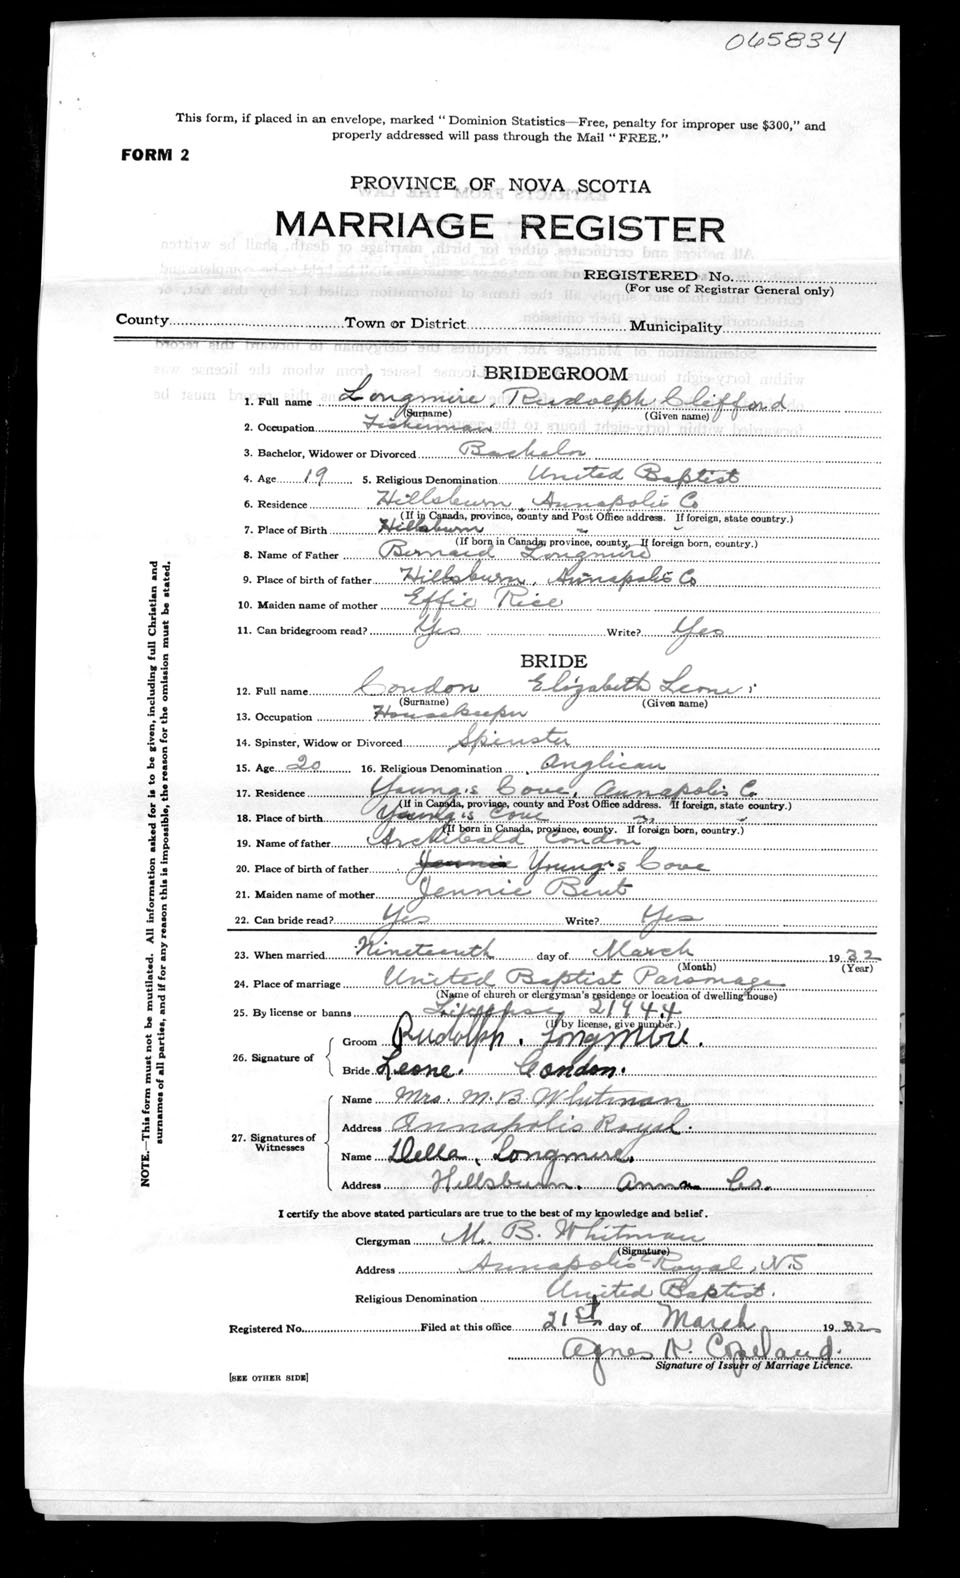 065834
This form, if placed in an envelope, marked "Dominion Statistics—Free, penalty for improper use $300," and
properly addressed will pass through the Mail "FREE."
FORM 2
PROVINCE OF NOVA SCOTIA
MARRIAGE REGISTER
REGISTERED No.
(For use of Registrar General only)
County Town or District Municipality
BRIDEGROOM
1. Full name Longmire, Rudolph Clifford
(Surname) (Given name)
2. Occupation Fisherman
3. Bachelor, Widower or Divorced Bachelor
4. Age 19 5. Religious Denomination United Baptist
6. Residence Hillsburn, Annapolis Co
(If in Canada, province, county and Post Office address. If foreign, state country.)
7. Place of Birth Hillsburn " "
(If born in Canada, province, county, If foreign born, country.)
8. Name of Father Bernard Longmire
9. Place of birth of father Hillsburn, Annapolis Co
10. Maiden name of mother Effie Rice
11. Can bridegroom read? Yes Write? Yes
BRIDE
12. Full name Condon Elizabeth Leone
(Surname) (Given name)
13. Occupation Housekeeper
14. Spinster, Widow or Divorced Spinster
15. Age 20 16. Religious Denomination Anglican
17. Residence Young's Cove, Annapolis Co
(If in Canada, province, county and Post Office address. If foreign, state country.)
18. Place of birth Young's Cove " "
(If born in Canada, province, county. If foreign born, country.)
19. Name of father Archibald Condon
20. Place of birth of father Jennie Young's Cove
21. Maiden name of mother Jennie Bent
22. Can bride read? Yes Write? Yes
23. When married Nineteenth day of March 1932
(Month) (Year)
24. Place of marriage United Baptist Parsonage
(Name of church or clergyman's residence or location of dwelling house)
25. By license or banns License 21944
(If by license, give number.)
26. Signature of
Groom Rudolph. Longmire.
Bride Leone. Condon.
27. Signatures of Witnesses
Name Mrs. M. B. Whitman
Address Annapolis Royal.
Name Della, Longmire,
Address Hillsburn. Anna Co.
I certify the above stated particulars are true to the best of my knowledge and belief.
Clergyman M. B. Whitman
(Signature)
Address Annapolis Royal, N.S
Religious Denomination United Baptist.
Registered No. Filed at this office 21st day of March 1932
Agnes N. Copeland.
Signature of Issuer of Marriage Licence.
[SEE OTHER SIDE]
NOTE.—This form must not be mutilated. All information asked for is to be given, including full Christian and
surnames of all parties, and if for any reason this is impossible, the reason for the omission must be stated.